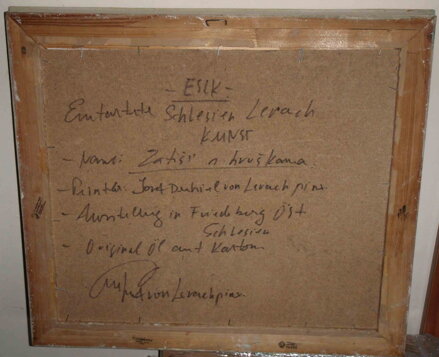 - ESLK -
Entartete Schlesien Lerach
KUNST
- Name: Zátiší s hruškama.
- Painter: Josef von Lerach pinx.
- Ausstellung in Friedberg Öst.
Schlesien
- Original Öl auf Karton.
von Lerach pinx.